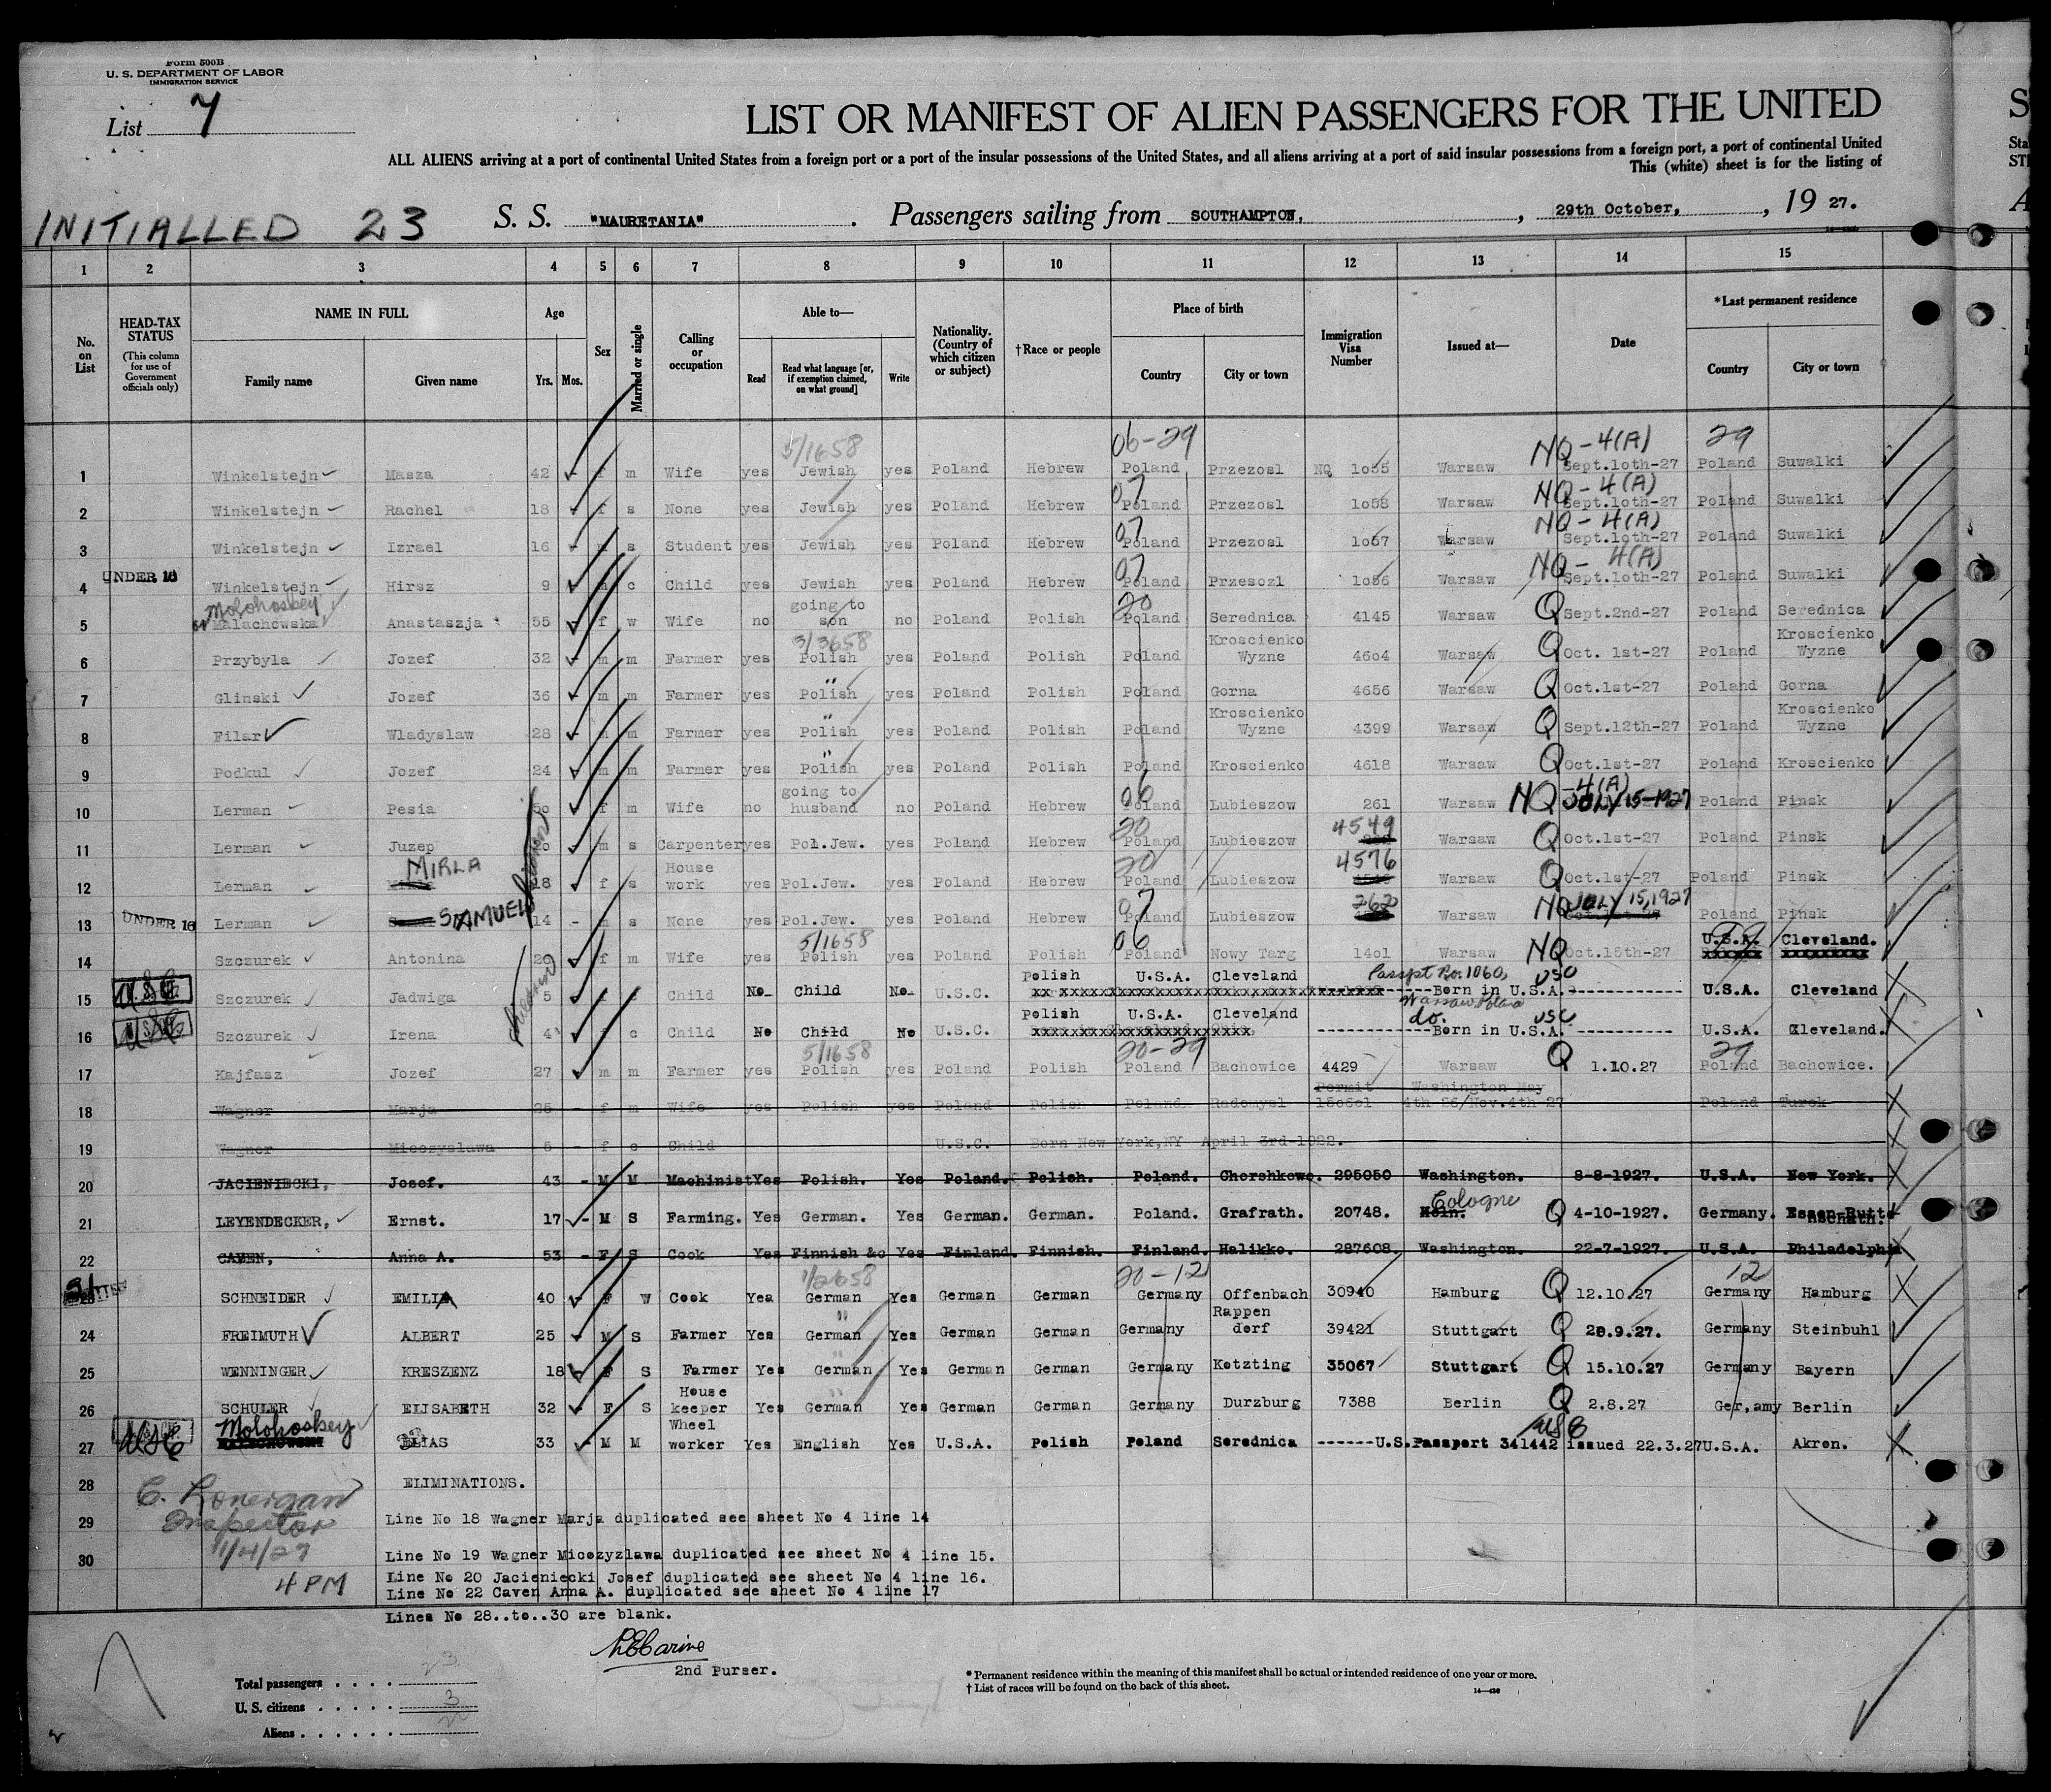 Form 500B
U. S. DEPARTMENT OF LABOR
IMMIGRATION SERVICE
List 7
LIST OR MANIFEST OF ALIEN PASSENGERS FOR THE UNITED
ALL ALIENS arriving at a port of continental United States from a foreign port or a port of the insular possessions of the United States, and all aliens arriving at a port of said insular possessions from a foreign port, a port of continental United
This (white) sheet is for the listing of
INITIALLED 23 S. S. "MAURETANIA" . Passengers sailing from SOUTHAMPTON, , 29th October, , 19 27.
1 2 3 4 5 6 7 8 9 10 11 12 13 14 15
No. on List
HEAD-TAX STATUS (This column for use of Government officials only)
NAME IN FULL Family name Given name
Age Yrs. Mos.
Sex
Married or single
Calling or occupation
Able to— Read Read what language [or, if exemption claimed, on what ground] Write
Nationality. (Country of which citizen or subject)
†Race or people
Place of birth Country City or town
Immigration Visa Number
Issued at—
Date
*Last permanent residence Country City or town
5/1658 06-29 NQ-4(A) 29
1 Winkelstejn Masza 42 - f m Wife yes Jewish yes Poland Hebrew Poland Przezosl NQ 1055 Warsaw Sept.10th-27 Poland Suwalki
07 NQ-4(A)
2 Winkelstejn Rachel 18 - f s None yes Jewish yes Poland Hebrew Poland Przezosl 1058 Warsaw Sept.10th-27 Poland Suwalki
07 NQ-4(A)
3 Winkelstejn Izrael 16 - m s Student yes Jewish yes Poland Hebrew Poland Przezosl 1057 Warsaw Sept.10th-27 Poland Suwalki
UNDER 16 07 NQ- 4(A)
4 Winkelstejn Hirsz 9 - m c Child yes Jewish yes Poland Hebrew Poland Przesozl 1056 Warsaw Sept.10th-27 Poland Suwalki
Molohoskey going to 20
5 or Malachowska Anastaszja 55 - f w Wife no son no Poland Polish Poland Serednica 4145 Warsaw Q Sept.2nd-27 Poland Serednica
3/3658 Kroscienko Kroscienko
6 Przybyla Jozef 32 - m m Farmer yes Polish yes Poland Polish Poland Wyzne 4604 Warsaw Q Oct. 1st-27 Poland Wyzne
"
7 Glinski Jozef 36 - m m Farmer yes Polish yes Poland Polish Poland Gorna 4656 Warsaw Q Oct.1st-27 Poland Gorna
" Kroscienko Kroscienko
8 Filar Wladyslaw 28 - m m Farmer yes Polish yes Poland Polish Poland Wyzne 4399 Warsaw Q Sept.12th-27 Poland Wyzne
"
9 Podkul Jozef 24 - m m Farmer yes Polish yes Poland Polish Poland Kroscienko 4618 Warsaw Q Oct.1st-27 Poland Kroscienko
going to 06 -4(A)
10 Lerman Pesia 50 - f m Wife no husband no Poland Hebrew Poland Lubieszow 261 Warsaw NQ JULY 15-1927 Poland Pinsk
20 4549
11 Lerman Juzep 20 - m s Carpenter yes Pol.Jew. yes Poland Hebrew Poland Lubieszow Warsaw Q Oct.1st-27 Poland Pinsk
MIRLA House 20 4576
12 Lerman 18 - f s work yes Pol.Jew. yes Poland Hebrew Poland Lubieszow Warsaw Q Oct.1st-27 Poland Pinsk
UNDER 16 07 262 JULY 15,1927
13 Lerman SAMUEL 14 - m s None yes Pol.Jew. yes Poland Hebrew Poland Lubieszow Warsaw NQ Oct.1st-27 Poland Pinsk
5/1658 06 U.S.A. Cleveland.
14 Szczurek Antonina 29 - f m Wife yes Polish yes Poland Polish Poland Nowy Targ 1401 Warsaw NQ Oct.15th-27
Polish U.S.A. Cleveland Passpt No.1060, USC
15 USC Szczurek Jadwiga 5 - f c Child No Child No U.S.C. Born in U.S.A. U.S.A. Cleveland
Warsaw Poland
Polish U.S.A. Cleveland do. USC
16 USC Szczurek Irena 4 f c Child No Child No U.S.C. Born in U.S.A. U.S.A. Cleveland.
5/1658 20-29 Q 29
17 Kajfasz Jozef 27 - m m Farmer yes Polish yes Poland Polish Poland Bachowice 4429 Warsaw 1.10.27 Poland Bachowice.
Permit Washington May
18 Wagner Marja 25 - f m Wife yes Polish yes Poland Polish Poland Radomysl 4th-26/Nov.4th-27 Poland Turek
19 Wagner Mieczyslawa 5 - f c Child U.S.C. Born New York,NY April 3rd-1922.
20 JACIENIECKI, Josef. 43 - M M Machinist Yes Polish. Yes Poland. Polish. Poland. Chorshkowo. 295050 Washington. 8-8-1927. U.S.A. New York.
Cologne
21 LEYENDECKER, Ernst. 17 - M S Farming. Yes German. Yes German. German. Poland. Grafrath. 20748. Koln. Q 4-10-1927. Germany. Essen-Rutt
22 CAVEN, Anna A. 53 - F S Cook Yes Finnish &c Yes Finland. Finnish. Finland. Halikko. 287608. Washington. 22-7-1927. U.S.A. Philadelphia
1/2658 20-12 12
23 SCHNEIDER EMILIA 40 - F W Cook Yes German Yes German German Germany Offenbach 30940 Hamburg Q 12.10.27 Germany Hamburg
" Rappen
24 FREIMUTH ALBERT 25 - M S Farmer Yes German Yes German German Germany dorf 39421 Stuttgart Q 20.9.27. Germany Steinbuhl
"
25 WENNINGER KRESZENZ 18 - F S Farmer Yes German Yes German German Germany Kotzting 35067 Stuttgart Q 15.10.27 Germany Bayern
House "
26 SCHULER ELISABETH 32 - F S keeper Yes German Yes German German Germany Durzburg 7388 Berlin Q 2.8.27 Ger,amy Berlin
Molohoskey Wheel USC
27 USC ELIAS 33 - M M worker Yes English Yes U.S.A. Polish Poland Serednica ------U.S.Passport 341442 issued 22.3.27 U.S.A. Akron.
28 ELIMINATIONS.
C. Lonergan
Inspector
29 Line No 18 Wagner Marja duplicated see sheet No 4 line 14
11/4/27
30 Line No 19 Wagner Micezyzlawa duplicated see sheet No 4 line 15.
4 PM
Line No 20 Jacieniecki Josef duplicated see sheet No 4 line 16.
Line No 22 Caven Anna A. duplicated see sheet No 4 line 17
Lines No 28..to..30 are blank.
2nd Purser.
Total passengers . . . . 23
U. S. citizens . . . . . 3
Aliens . . . . . . 20
* Permanent residence within the meaning of this manifest shall be actual or intended residence of one year or more.
† List of races will be found on the back of this sheet.